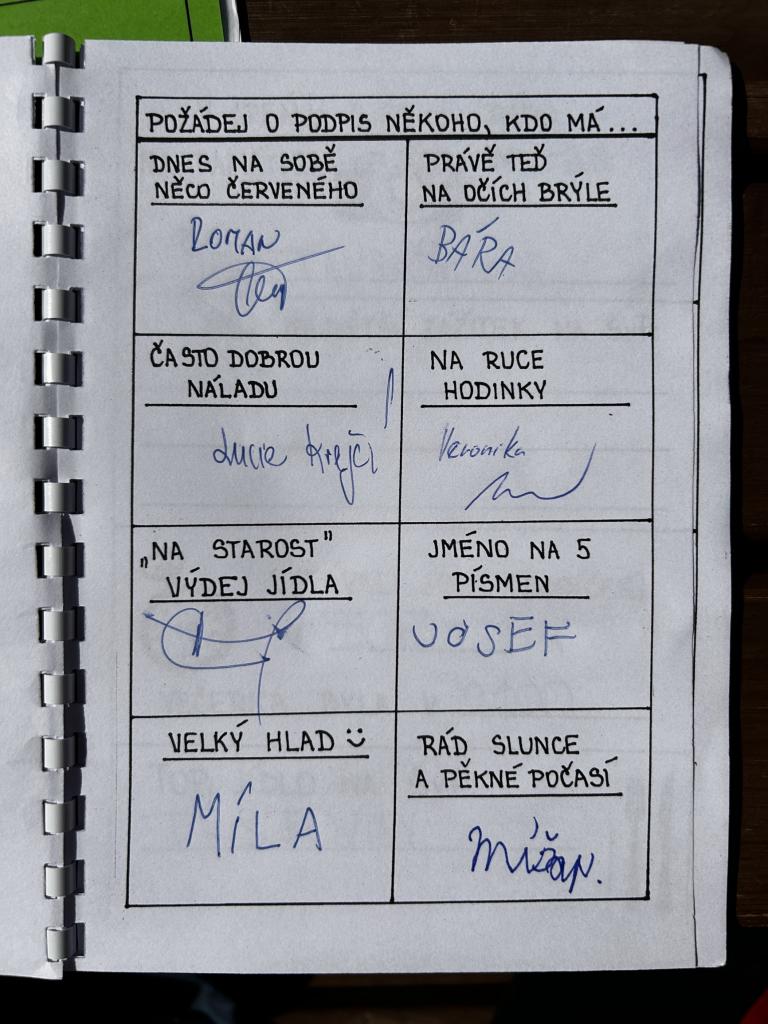 POŽÁDEJ O PODPIS NĚKOHO, KDO MÁ...
DNES NA SOBĚ
NĚCO ČERVENÉHO
ROMAN
PRÁVĚ TEĎ
NA OČÍCH BRÝLE
BÁRA
ČASTO DOBROU
NÁLADU
Lucie Krejčí
NA RUCE
HODINKY
Veronika
„NA STAROST"
VÝDEJ JÍDLA
JMÉNO NA 5
PÍSMEN
JOSEF
VELKÝ HLAD
MÍLA
RÁD SLUNCE
A PĚKNÉ POČASÍ